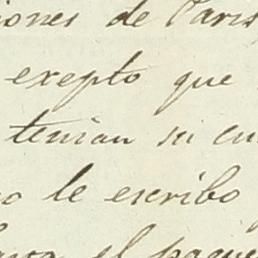 iones de Paris
exepto que
tenian su cu
o le escribo
el paque